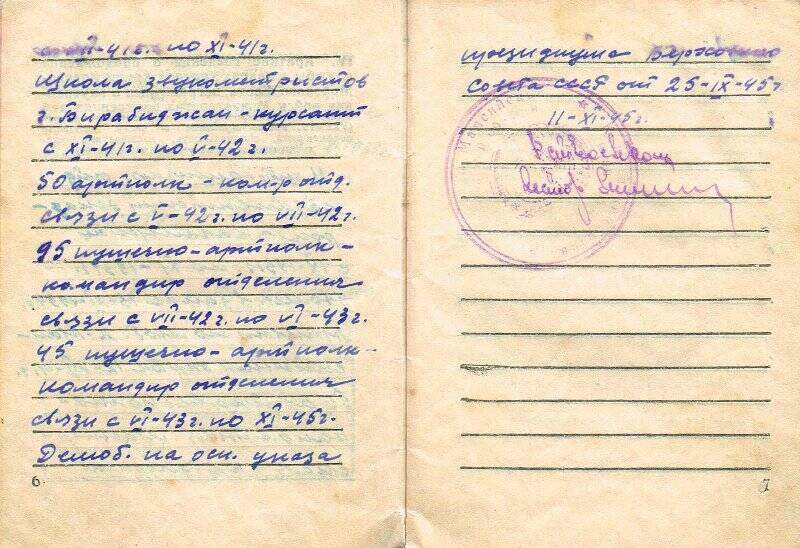 II-41г. по XI-41г.
Школа звукометристов
г. Биробиджан - курсант
с XI-41г. по V-42г.
50 артполк - ком-р отд.
связи с V-42г. по VII-42г.
95 пушечно-артполк -
командир отделения
связи с VII-42г. по VI-43г.
45 пушечно-артполк -
командир отделения
связи с VI-43г. по XI-45г.
Демоб. на осн. указа
6
президиума Верховного
Совета СССР от 25-IX-45г.
11-XI-45г.
7